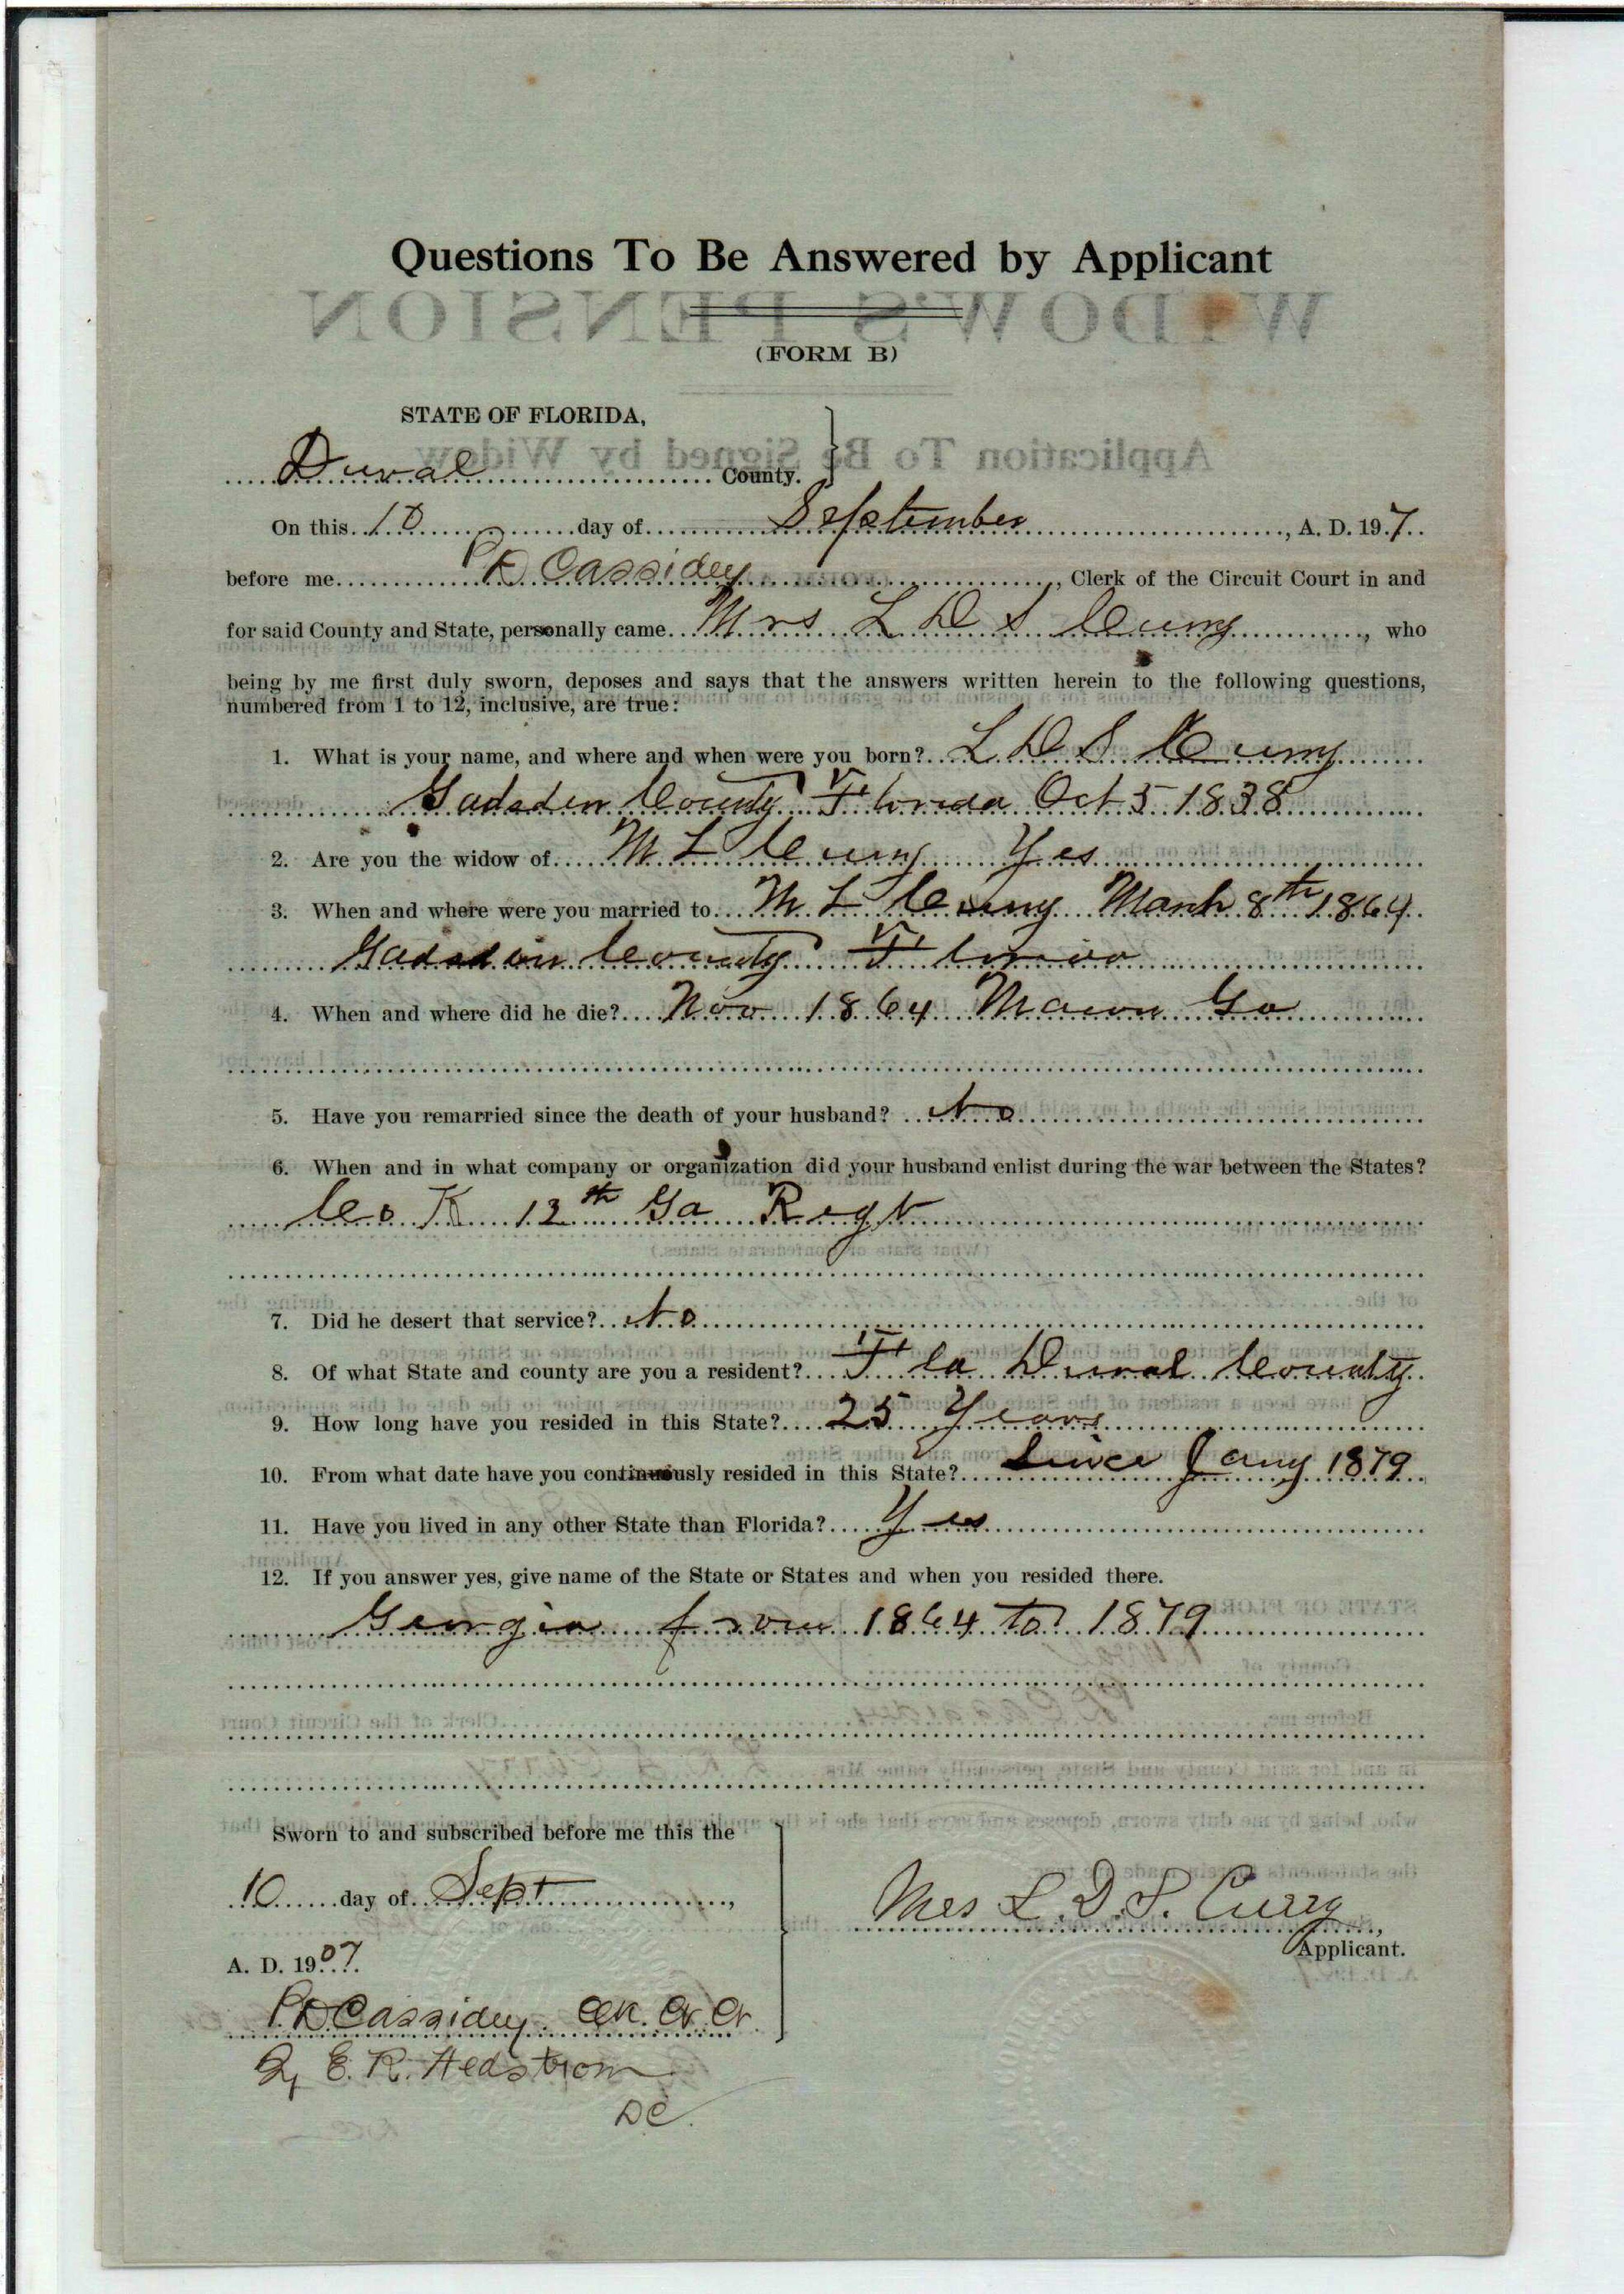 Questions To Be Answered by Applicant
(FORM B)
STATE OF FLORIDA,
Duval County.
On this 10 day of September, A. D. 197
before me P D Cassidey, Clerk of the Circuit Court in and
for said County and State, personally came Mrs L D S Curry, who
being by me first duly sworn, deposes and says that the answers written herein to the following questions,
numbered from 1 to 12, inclusive, are true:
1. What is your name, and where and when were you born? L D S Curry
Gadsden County Florida Oct 5 1838
2. Are you the widow of M L Curry Yes
3. When and where were you married to M L Curry March 8th 1864
Gadsden County Florida
4. When and where did he die? Nov 1864 Macon Ga
5. Have you remarried since the death of your husband? No
6. When and in what company or organization did your husband enlist during the war between the States?
Co K 12th Ga Regt
7. Did he desert that service? No
8. Of what State and county are you a resident? Fla Duval County
9. How long have you resided in this State? 25 Years
10. From what date have you continuously resided in this State? Since Jany 1879
11. Have you lived in any other State than Florida? Yes
12. If you answer yes, give name of the State or States and when you resided there.
Georgia from 1864 to 1879
Sworn to and subscribed before me this the
10 day of Sept,
A. D. 1907.
P. D Cassidey. Clk. Cr. Ct.
By E. R. Hedstrom
DC.
Mrs L. D. S. Curry,
Applicant.